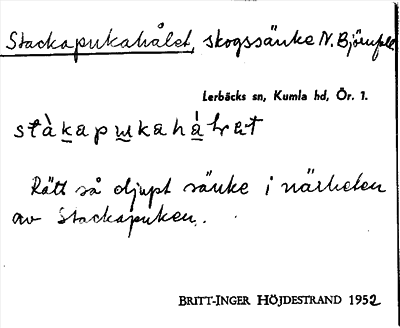 Stackapukahålet, skogssänke N. Björnfall
Lerbäcks sn, Kumla hd, Ör. 1.
stàkapukahálet
Rätt så djupt sänke i närheten
av Stackapuken.
BRITT-INGER HÖJDESTRAND 1952